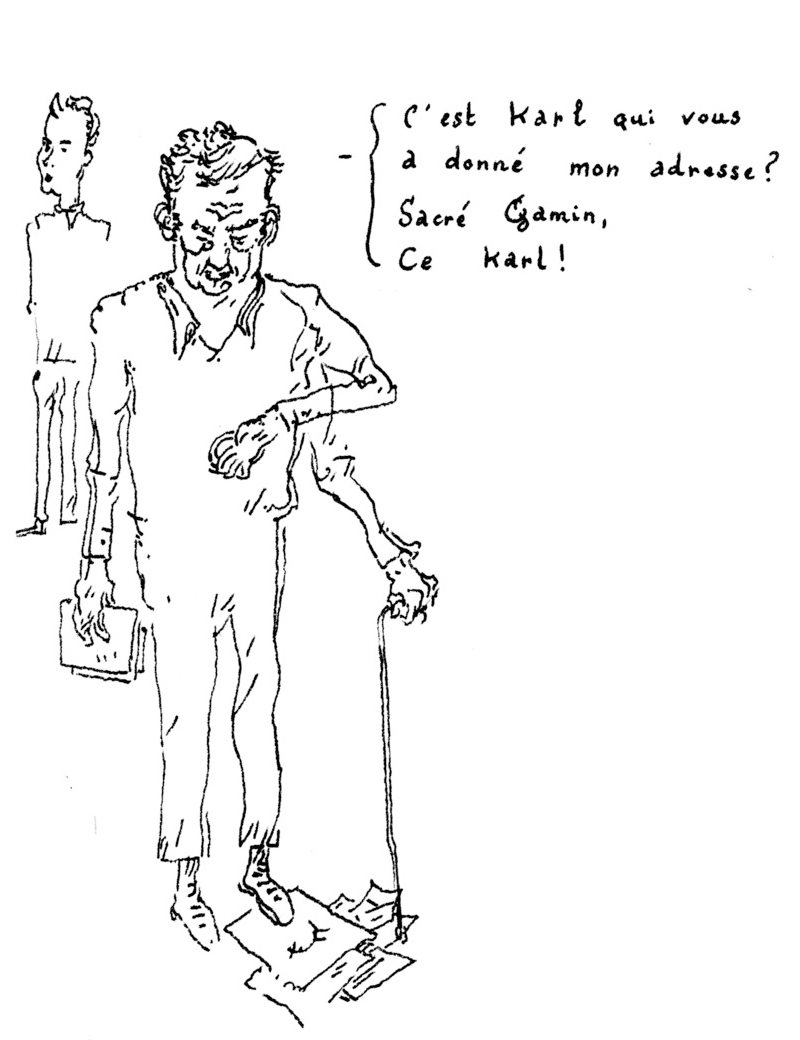 - C'est Karl qui vous
a donné mon adresse?
Sacré Gamin,
Ce Karl!